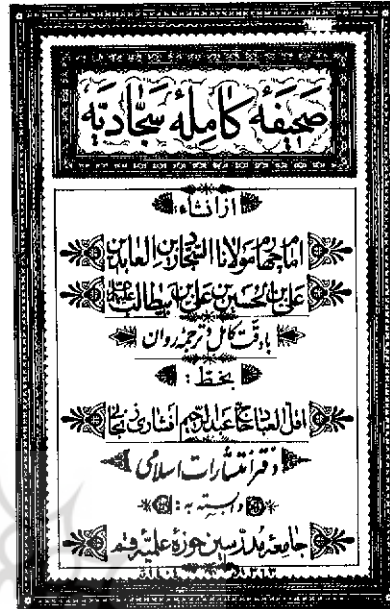 صحیفهٔ کاملهٔ سجّادیّه
از انشاء:
امام چهارم مولانا السجاد زین العابدین
علی بن الحسین بن علی بن ابیطالب علیه
با دقّت کامل و ترجمهٔ روان
بخطّ:
اقل العباد حاج عبدالرحیم افشاری زنجانی
دفتر انتشارات اسلامی
وابسته به:
جامعهٔ مدرّسین حوزهٔ علمیّه قم